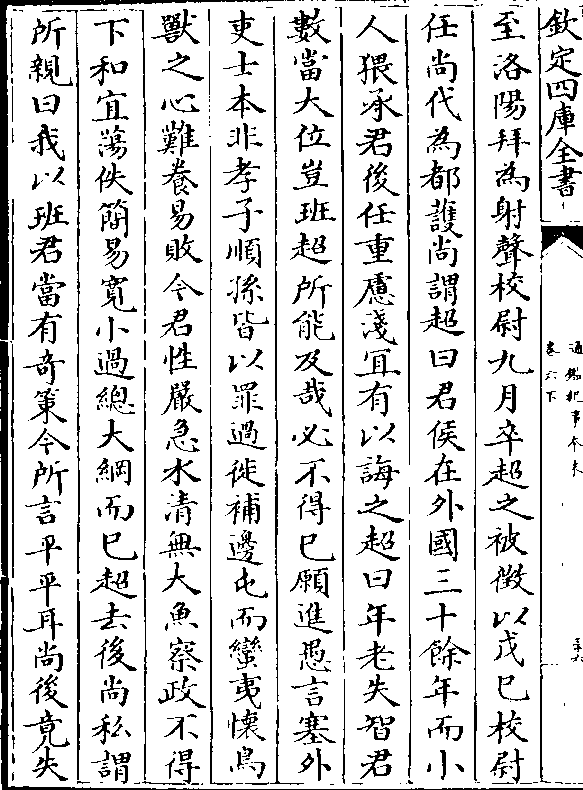 欽定四庫全書
通鑑紀事本末
卷六下
至洛陽拜為射聲校尉九月卒超之被徵以戊巳校尉
任尚代為都護尚謂超曰君侯在外國三十餘年而小
人猥承君後任重慮淺宜有以誨之超曰年老失智君
數當大位豈班超所能及哉必不得巳願進愚言塞外
吏士本非孝子順孫皆以罪過徙補邊屯而蠻夷懷鳥
獸之心難養易敗今君性嚴急水清無大魚察政不得
下和宜蕩佚簡易寛小過總大綱而巳超去後尚私謂
所親曰我以班君當有奇策今所言平平耳尚後竟失